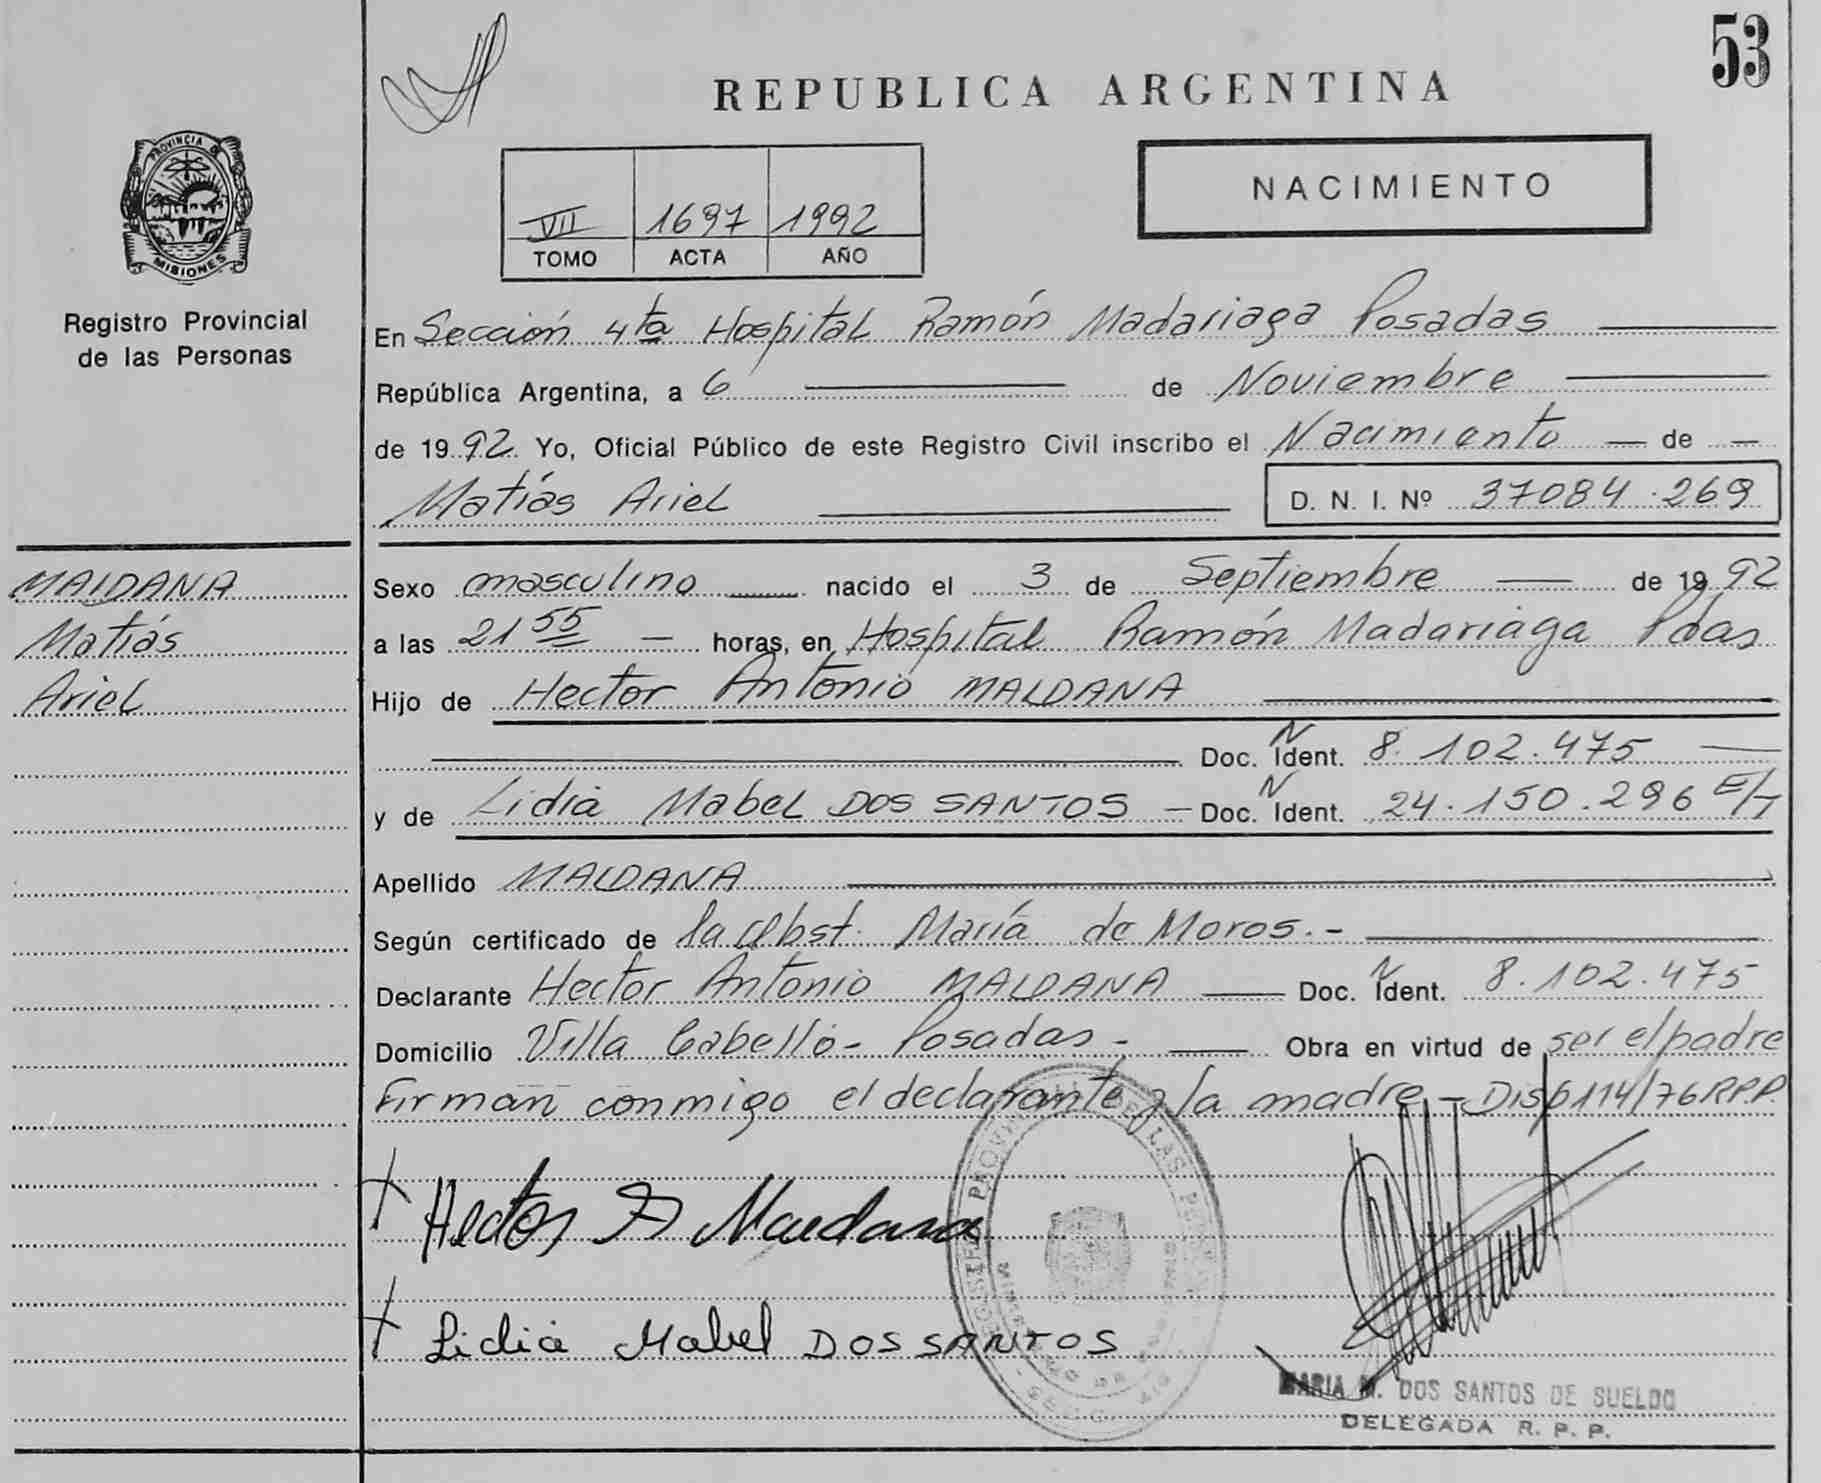 53
REPUBLICA ARGENTINA
PROVINCIA DE
MISIONES
Registro Provincial
de las Personas
NACIMIENTO
VII 1697 1992
TOMO ACTA AÑO
En Sección 4ta Hospital Ramón Madariaga Posadas
República Argentina, a 6 de Noviembre
de 1992 Yo, Oficial Público de este Registro Civil inscribo el Nacimiento de
Matías Ariel D. N. I. Nº 37084.269
MAIDANA
Matías
Ariel
Sexo masculino nacido el 3 de Septiembre de 1992
a las 21 55 horas, en Hospital Ramón Madariaga Pdas
Hijo de Hector Antonio MAIDANA
Doc. Ident. N 8.102.475
y de Lidia Mabel DOS SANTOS Doc. Ident. N 24.150.296 E/T
Apellido MAIDANA
Según certificado de la Obst. María de Moros.-
Declarante Hector Antonio MAIDANA Doc. Ident. N 8.102.475
Domicilio Villa Cabello- Posadas- Obra en virtud de ser el padre
Firman conmigo el declarante y la madre - Disp 114/76 RPP
Hector A Maidana
Lidia Mabel DOS SANTOS
MARIA M. DOS SANTOS DE SUELDO
DELEGADA R. P. P.